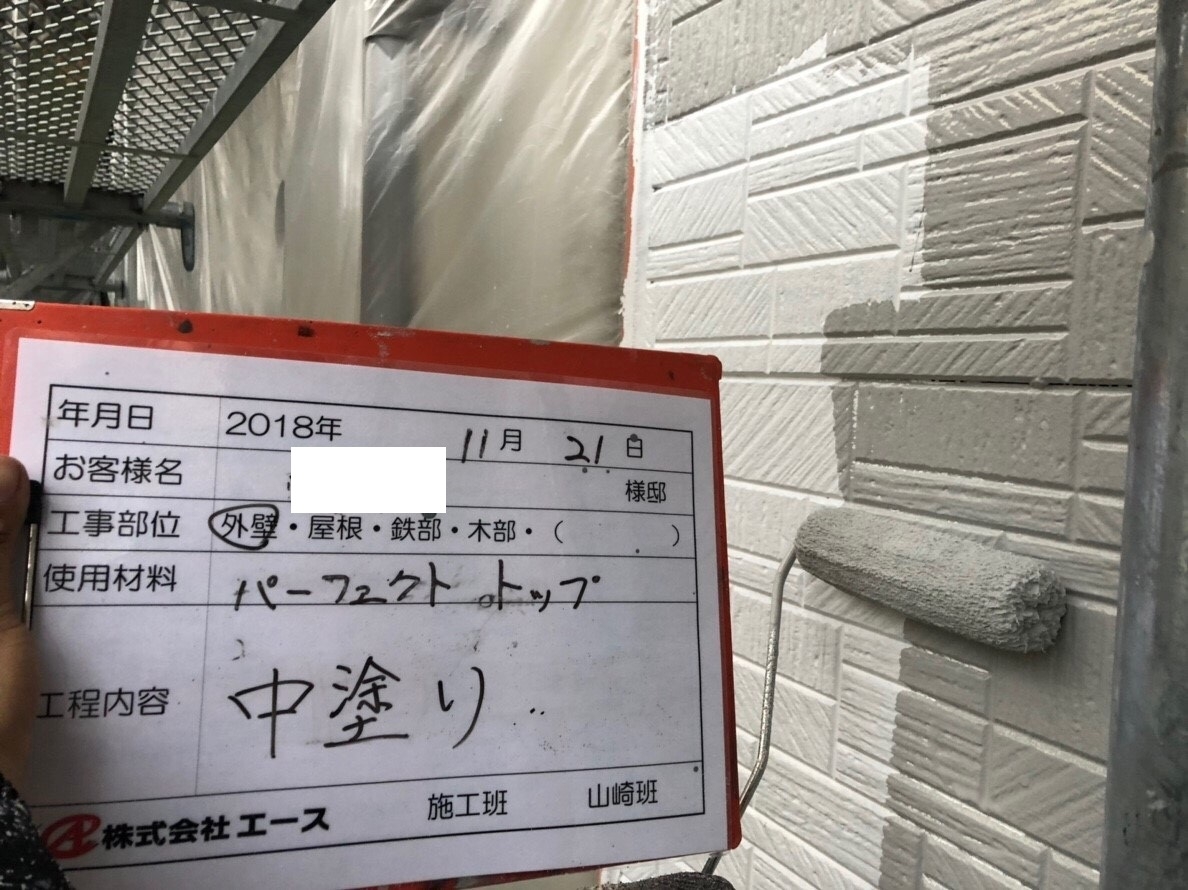 年月日 2018年 11月 21日
お客様名 様邸
工事部位 外壁・屋根・鉄部・木部・（ ）
使用材料 パーフェクトトップ
工程内容 中塗り
株式会社エース 施工班 山崎班